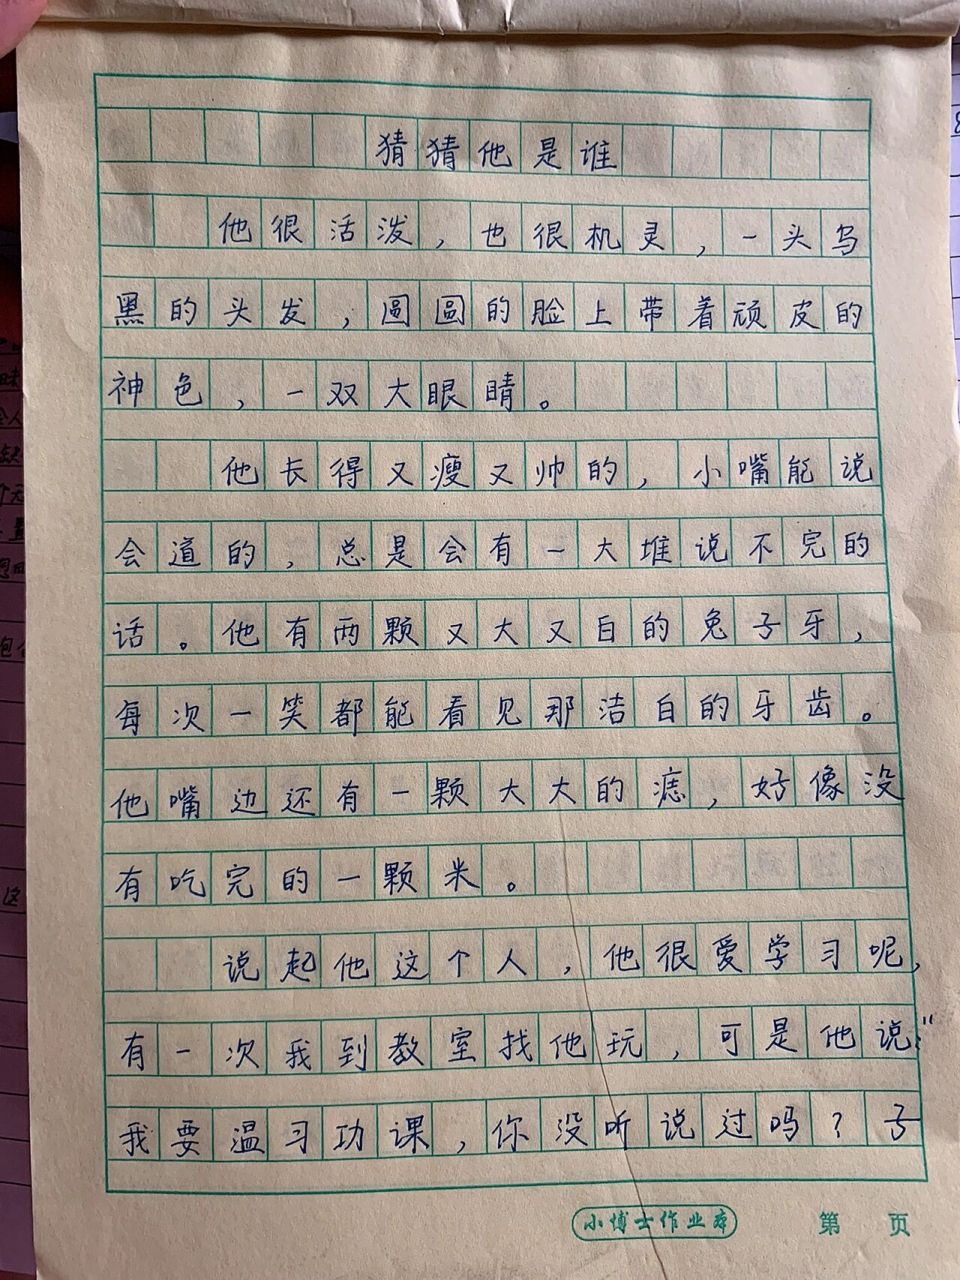 猜猜他是谁
他很活泼，也很机灵，一头乌
黑的头发，圆圆的脸上带着顽皮的
神色，一双大眼睛。
他长得又瘦又帅的，小嘴能说
会道的，总是会有一大堆说不完的
话。他有两颗又大又白的兔子牙，
每次一笑都能看见那洁白的牙齿。
他嘴边还有一颗大大的痣，好像没
有吃完的一颗米。
说起他这个人，他很爱学习呢，
有一次我到教室找他玩，可是他说：“
我要温习功课，你没听说过吗？子
小博士作业本
第 页